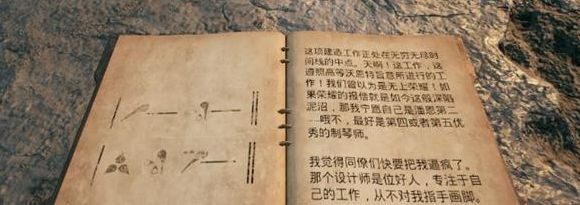 这项建造工作正处在无穷无尽时
间线的中点。天啊！这工作，这
遵照高等沃恩特旨意所进行的工
作！我们曾以为是无上荣耀！如
果荣耀的报偿就是如今这般深陷
泥沼，那我宁愿自己是潘恩第二
……哦不，最好是第四或者第五优
秀的制琴师。
我觉得同僚们快要把我逼疯了。
那个设计师是位好人，专注于自
己的工作，从不对我指手画脚。